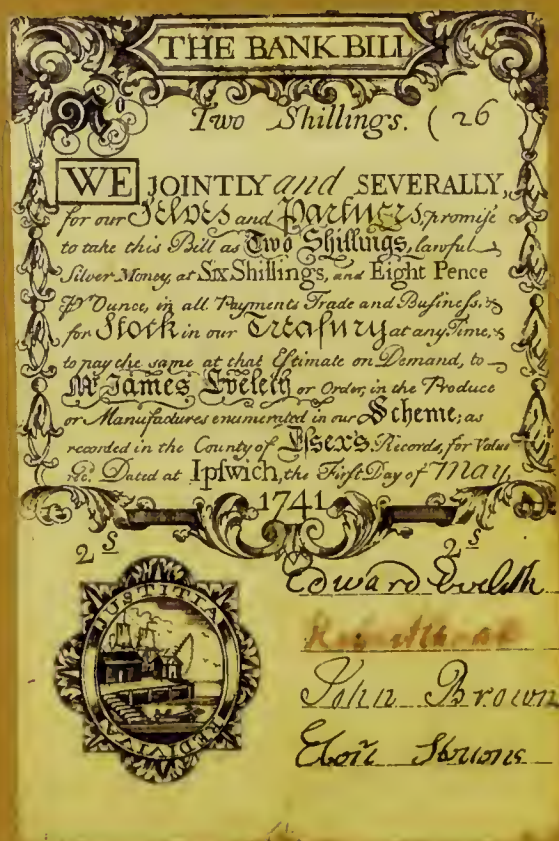 THE BANK BILL
No
Two Shillings. ( 26
WE JOINTLY and SEVERALLY,
for our Selves and Partners, promise
to take this Bill as Two Shillings, lawful
Silver Money, at Six Shillings, and Eight Pence
Pr Ounce, in all Payments Trade and Business, &
for Stock in our Treasury at any Time, &
to pay the same at that Estimate on Demand, to
Mr James Eveleth or Order, in the Produce
or Manufactures enumerated in our Scheme; as
recorded in the County of Essex's Records, for Value
rec. Dated at Ipswich, the First Day of May,
1741
2 S 2 S
Edward Eveleth
John Brown
JUSTITIA REDIVIVA